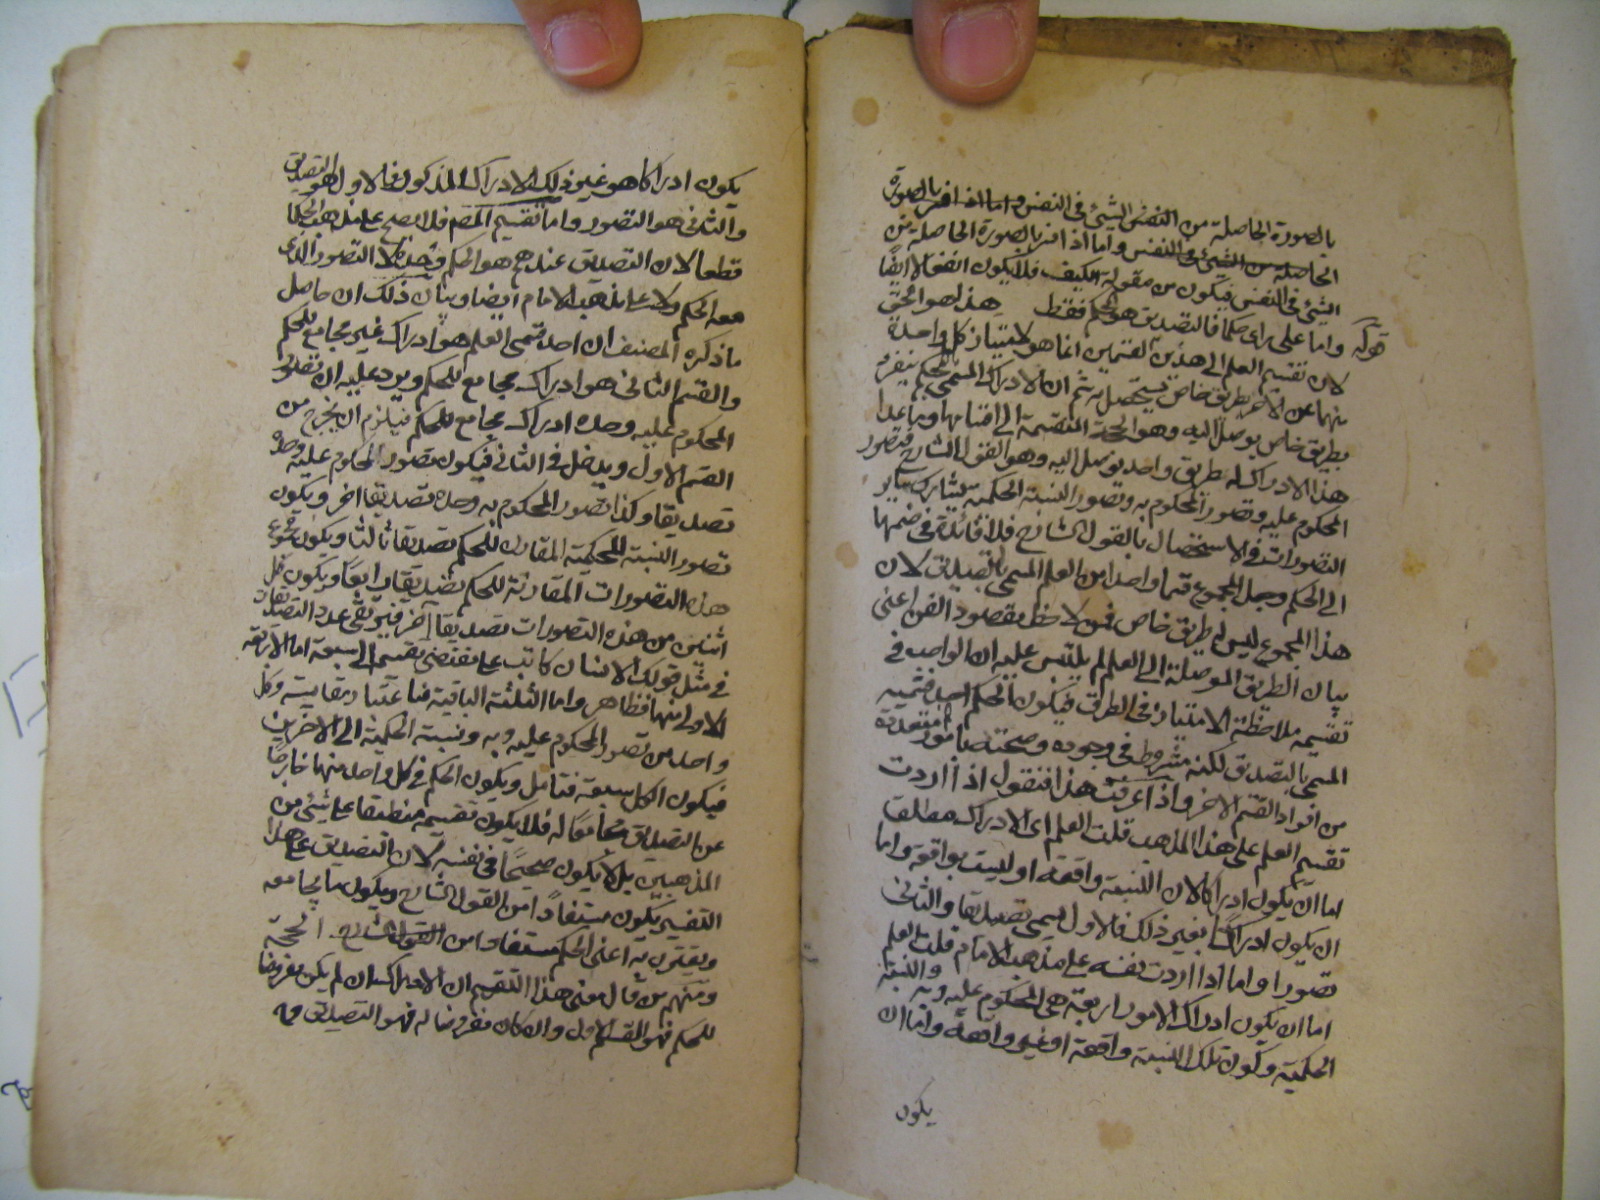 بالصورة الحاصلة من النفس الشيئ في النفس واما اذا فسر بالصورة
الحاصلة من الشيئ في النفس واما اذا فسر بالصورة الحاصلة من
الشيئ في النفس فيكون من مقولة الكيف فلا يكون انفعالا ايضا
قوله واما على راى حكما فالتصديق هو الحكم فقط هذا هو الحق
لان تقسيم العلم الى هذين القسمين انما هو لامتياز كل واحدة
منهما عن الاخر بطريق خاص يستحصل به ثم ان الادراك المسمى بالحكم ينفرد
بطريق خاص يوصل اليه وهو الحجة المنقسمة الى اقسامها وما عدا
هذا الادراك له طريق واحد يوصل اليه وهو القول الشارح فتصور
المحكوم عليه وتصور المحكوم به وتصور النسبة الحكمية يشارك سائر
التصورات في الاستحصال بالقول الشارح فلا فائدة في ضمها
الى الحكم وجعل المجموع قسما واحدا من العلم المسمى بالتصديق لان
هذا المجموع ليس له طريق خاص فمن لاحظ مقصود الفن اعنى
بيان الطريق الموصلة الى العلم لم يلتبس عليه ان الواجب في
تقسيمه ملاحظة الامتياز في الطرق فيكون الحكم احد قسميه
المسمى بالتصديق لكنه مشروط في وجوده وصحته ضا امور متعددة
من افراد القسم الاخر واذا عرفت هذا فنقول اذا اردت
تقسيم العلم على هذا المذهب قلت العلم اى الادراك مطلقا
اما ان يكون ادراكا لان النسبة واقعة او ليست بواقعة واما
ان يكون ادراكا بغير ذلك فالاول يسمى تصديقا والثانى
تصورا واما اذا اردت نفسه على مذهب الامام قلت العلم
اما ان يكون ادراك الامور اربعة هى المحكوم عليه وبه والنسبة
الحكمية وكون تلك النسبة واقعة او غير واقعة واما ان
يكون
يكون ادراكا هو غير ذلك الادراك المذكور فالاول هو التصديق
والثانى هو التصور واما تقسيم المصم فلا يصح على مذهب الحكما
قطعا لان التصديق عندهم هو الحكم وحده لا التصور الذى
معه الحكم ولا على مذهب الامام ايضا وبيان ذلك ان حاصل
ما ذكره المصنف ان احد قسمى العلم هو ادراك غير مجامع للحكم
والقسم الثانى هو ادراك مجامع للحكم ويرد عليه ان تصور
المحكوم عليه وحده ادراك مجامع للحكم فيلزم ان يخرج من
القسم الاول ويدخل في الثانى فيكون تصور المحكوم عليه وحده
تصديقا وكذا تصور المحكوم به وحده تصديقا اخر ويكون
تصور النسبة الحكمية المقارن للحكم تصديقا ثالثا ويكون مجموع
هذه التصورات المقارنة للحكم تصديقا رابعا ويكون كل
اثنين من هذه التصورات تصديقا آخر فيرتقى عدد التصديقات
في مثل قولك الانسان كاتب على مقتضى تقسيمه الى سبعة اما الاربعة
الاولى منها فظاهر واما الثلثة الباقية فباعتبار مقايسة وكل
واحد من تصور المحكوم عليه وبه ونسبة الحكمية الى الاخرين
فيكون الكل سبعة فتامل ويكون الحكم في كل واحد منها خارجا
عن التصديق مجامعا له فلا يكون تقسيمه منطبقا على شيئ من
المذهبين بل لا يكون صحيحا في نفسه لان التصديق على هذا
التفسير يكون مستفادا من القول الشارح ويكون ما يجامعه
ويقترن به اعنى الحكم مستفادا من القول الشارح الحجة
ومنهم من قال معنى هذا التقسيم ان الادراك ان لم يكن معروضا
للحكم فهو القسم الاول وان كان معروضا له فهو التصديق